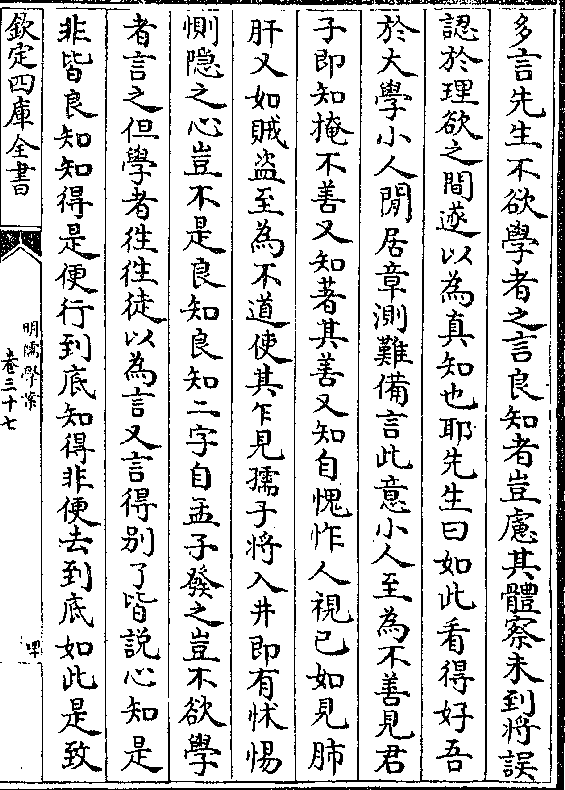 多言先生不欲學者之言良知者豈慮其體察未到將誤
認於理欲之間遂以為真知也耶先生曰如此看得好吾
於大學小人閒居章測難備言此意小人至為不善見君
子即知掩不善又知著其善又知自愧怍人視己如見肺
肝又如賊盗至為不道使其乍見孺子將入井即有怵惕
惻隠之心豈不是良知良知二字自孟子發之豈不欲學
者言之但學者徃徃徒以為言又言得别了皆説心知是
非皆良知知得是便行到底知得非便去到底如此是致
欽定四庫全書
明儒學案
卷三十七